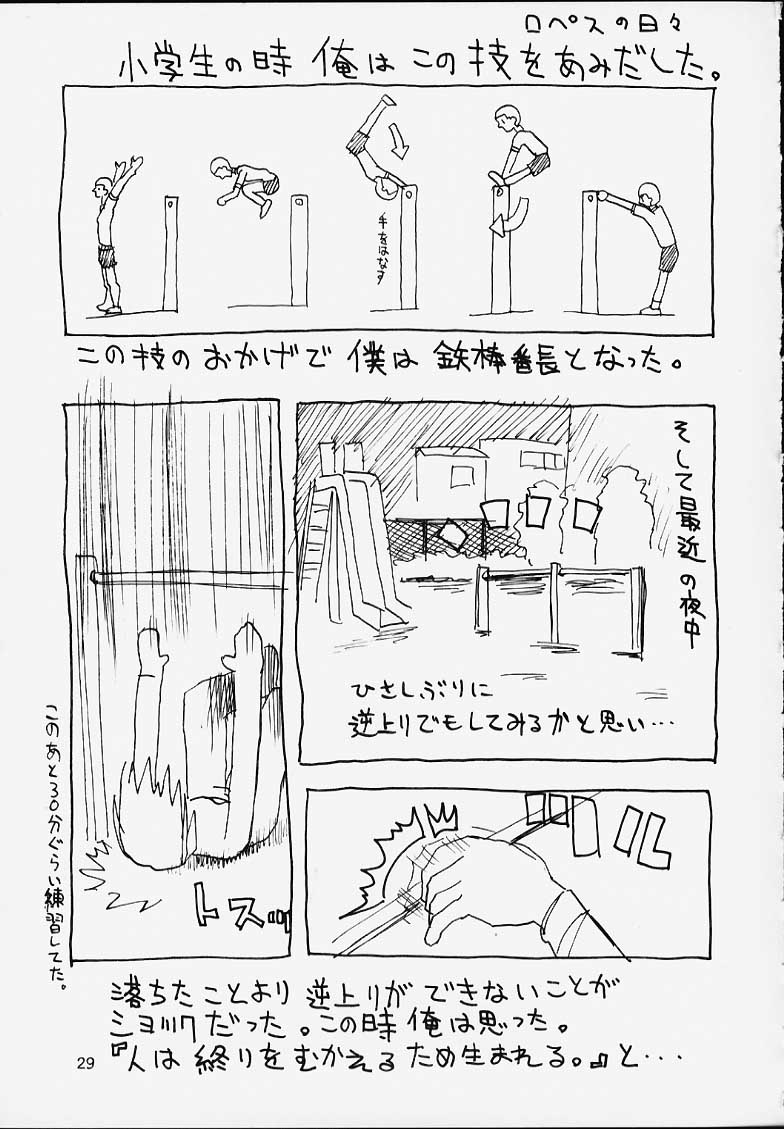 ロペスの日々
小学生の時 俺は この技をあみだした。
手をはなす
この技の おかげで 僕は 鉄棒番長となった。
そして最近の夜中
ひさしぶりに
逆上りでもしてみるかと思い…
ツルル
トスッ
このあと30分ぐらい練習してた。
落ちたことより 逆上りが できないことが
ショックだった。この時 俺は思った。
『人は 終りを むかえる ため生まれる。』と・・・
29